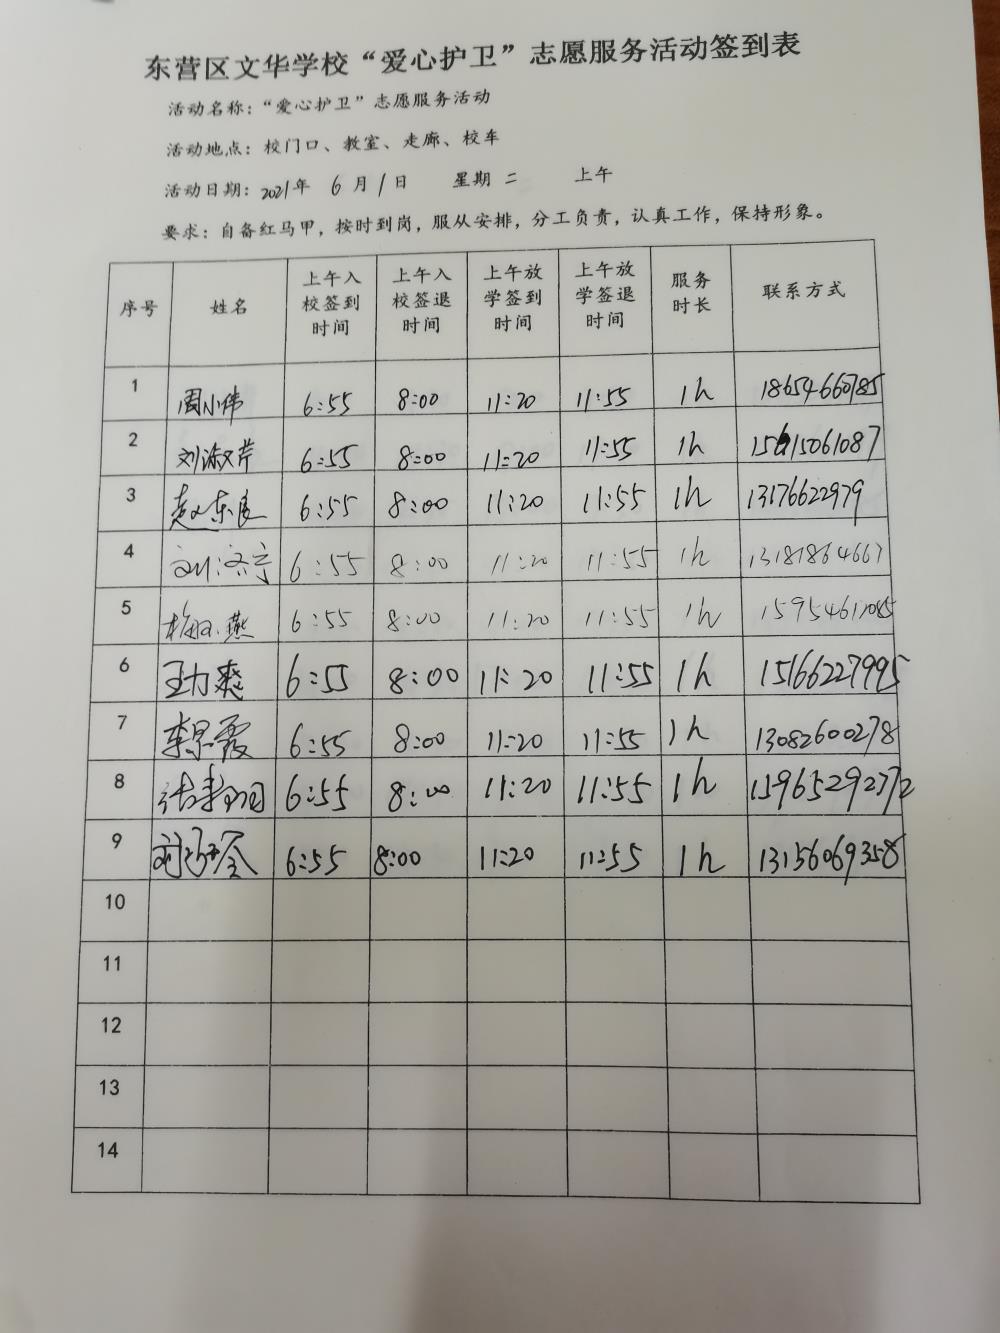 东营区文华学校“爱心护卫”志愿服务活动签到表
活动名称：“爱心护卫”志愿服务活动
活动地点：校门口、教室、走廊、校车
活动日期：2021年 6月1日 星期二 上午
要求：自备红马甲，按时到岗，服从安排，分工负责，认真工作，保持形象。
序号 姓名 上午入校签到时间 上午入校签退时间 上午放学签到时间 上午放学签退时间 服务时长 联系方式
1 周小伟 6:55 8:00 11:20 11:55 1h 18654660785
2 刘淑芹 6:55 8:00 11:20 11:55 1h 15615061087
3 赵东良 6:55 8:00 11:20 11:55 1h 13176622979
4 6:55 8:00 11:20 11:55 1h 13181864667
5 6:55 8:00 11:20 11:55 1h
6 王力爽 6:55 8:00 11:20 11:55 1h 15166227995
7 李景霞 6:55 8:00 11:20 11:55 1h 13082600278
8 6:55 8:00 11:20 11:55 1h 15965292372
9 6:55 8:00 11:20 11:55 1h 13156069358
10
11
12
13
14